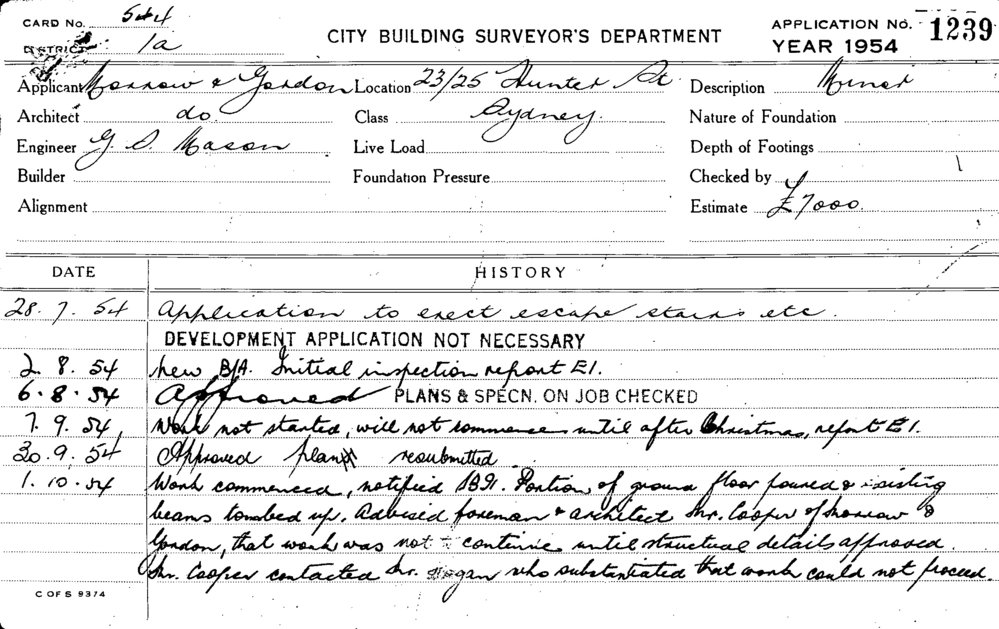 CARD No. 544
DISTRICT 1a
CITY BUILDING SURVEYOR'S DEPARTMENT
APPLICATION No. 1239
YEAR 1954
Applicant Morrow & Gordon Location 23/25 Hunter St Description Minor
Architect do. Class Sydney. Nature of Foundation
Engineer G. S. Mason Live Load Depth of Footings
Builder Foundation Pressure Checked by
Alignment Estimate £7000.
DATE HISTORY
28. 7. 54 Application to erect escape stairs etc.
DEVELOPMENT APPLICATION NOT NECESSARY
2. 8. 54 New B/A. Initial inspection report E1.
6. 8. 54 Approved PLANS & SPECN. ON JOB CHECKED
7. 9. 54, Work not started, will not commence until after Christmas, report E1.
30. 9. 54 Approved plan resubmitted
1. 10. 54 Work commenced, notified Portion of ground floor poured & existing
beams up. Advised foreman & architect Mr. Cooper of Morrow &
Gordon, that work was not to continue until structural details approved.
Mr. Cooper contacted Mr. Hogan who substantiated that work could not proceed.
C OF S 9374